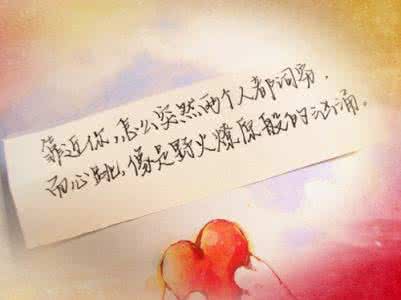 靠近你,怎么突然两个人都词穷.
而心跳,像是野火燎原般的汹涌。